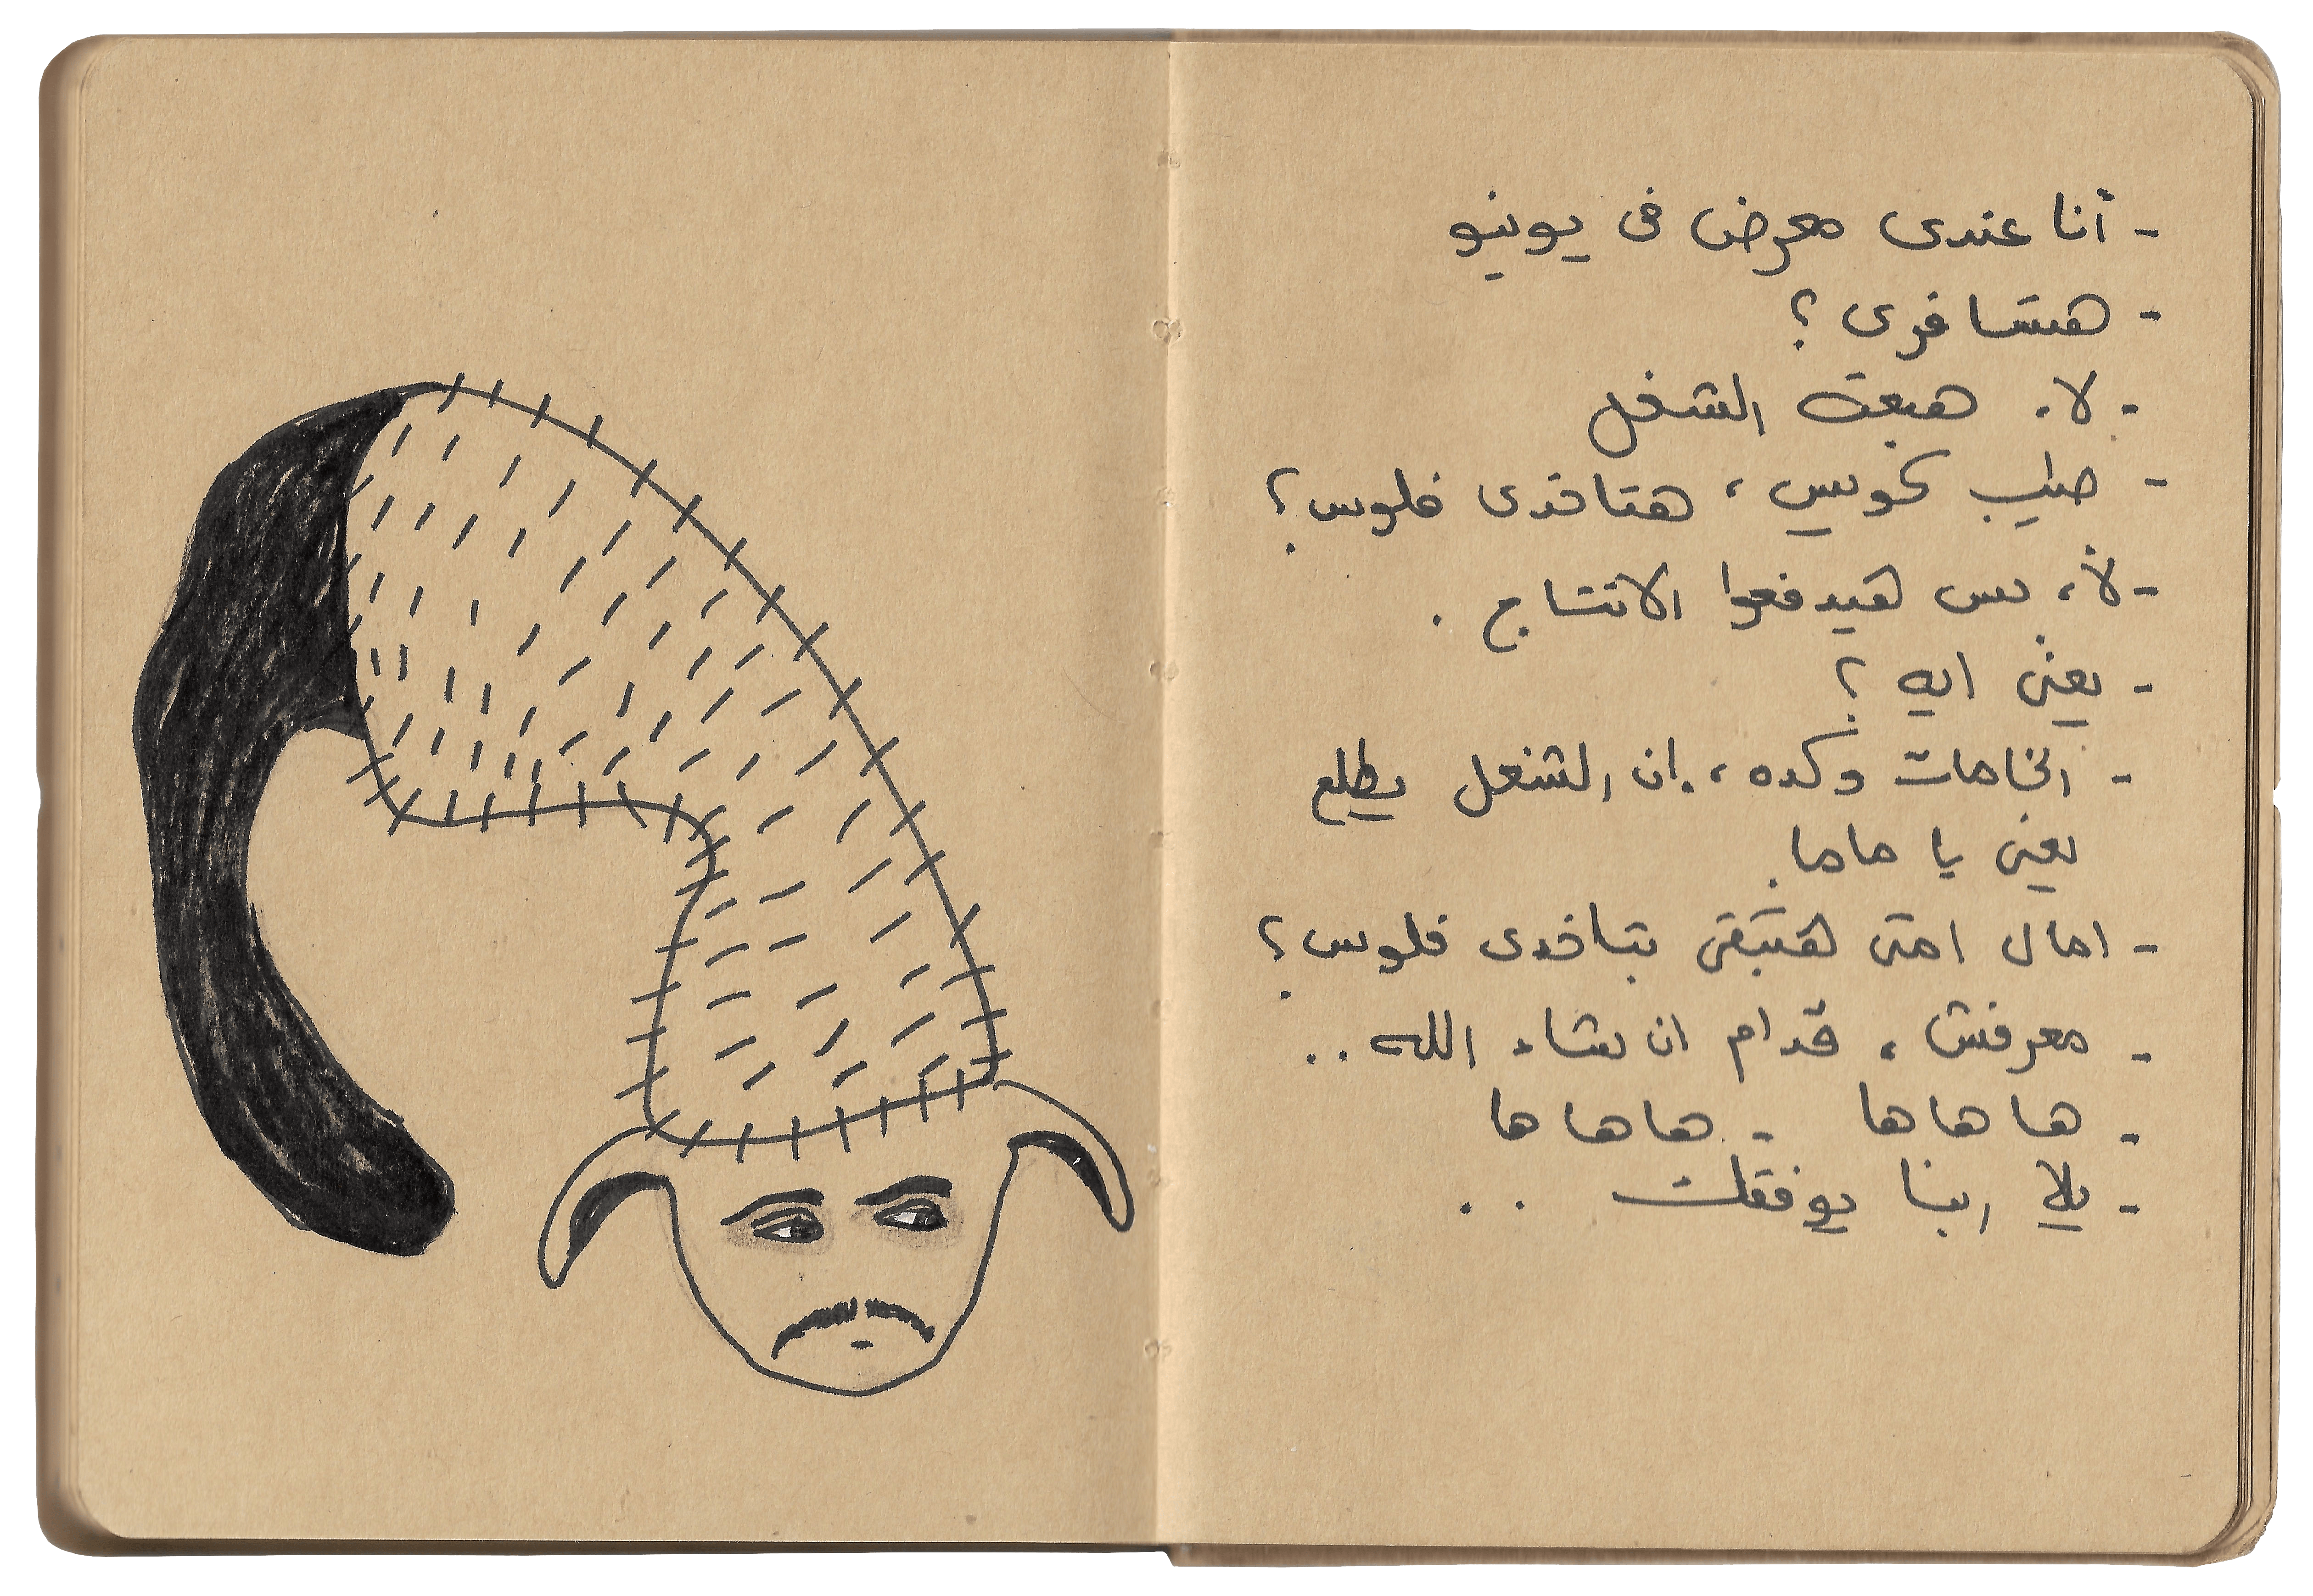 - أنا عندى معرض فى يونيو
- هتسافرى؟
- لا، هبعت الشغل
- طيب كويس، هتاخدى فلوس؟
- لأ، بس هيدفعوا الانتاج.
- يعنى ايه؟
- الخامات وكده، ان الشغل يطلع
يعنى يا ماما.
- امال امتى هتبقى بتاخدى فلوس؟
- معرفش، قدام ان شاء الله..
- هاهاها - هاهاها
- يلا ربنا يوفقك ..